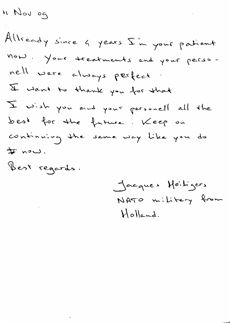 11 Nov 09
Allready since 4 years I'm your patient
now. Your treatments and your perso-
nell were always perfect.
I want to thank you for that
I wish you and your personell all the
best for the future. Keep on
continuing the same way like you do
now.
Best regards.
Jacques
NATO military from
Holland.